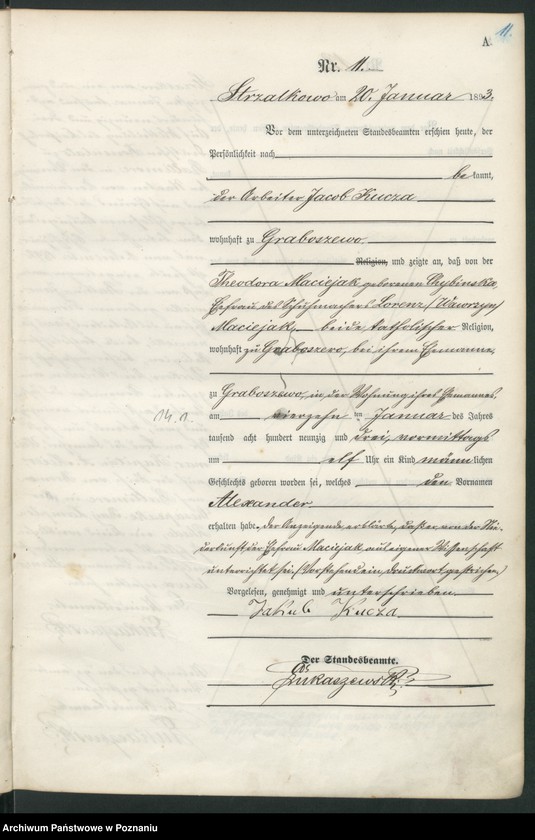 11.
A.
Nr. 11.
Strzalkowo am 20. Januar 1893.
Vor dem unterzeichneten Standesbeamten erschien heute, der
Persönlichkeit nach
bekannt,
der Arbeiter Jacob Kucza
wohnhaft zu Graboszewo
Religion, und zeigte an, daß von der
Theodora Maciejak geborenen Chybinska,
Ehefrau des Schuhmachers Lorenz /Wawrzyn/
Maciejak, beide katholischer Religion,
wohnhaft zu Graboszewo, bei ihrem Ehemanne,
zu Graboszewo, in der Wohnung ihres Ehemannes
14.1.
am vierzehnten Januar des Jahres
tausend acht hundert neunzig und drei, vormittags
um elf Uhr ein Kind männlichen
Geschlechts geboren worden sei, welches den Vornamen
Alexander
erhalten habe. der Anzeigende erklärte, daß er von der Nie-
derkunft der Ehefrau Maciejak aus eigener Wissenschaft
unterrichtet sei. /Vorstehend ein Druckwort gestrichen/
Vorgelesen, genehmigt und unterschrieben.
Jakub Kucza
Der Standesbeamte.
Lukaszewski
Archiwum Państwowe w Poznaniu